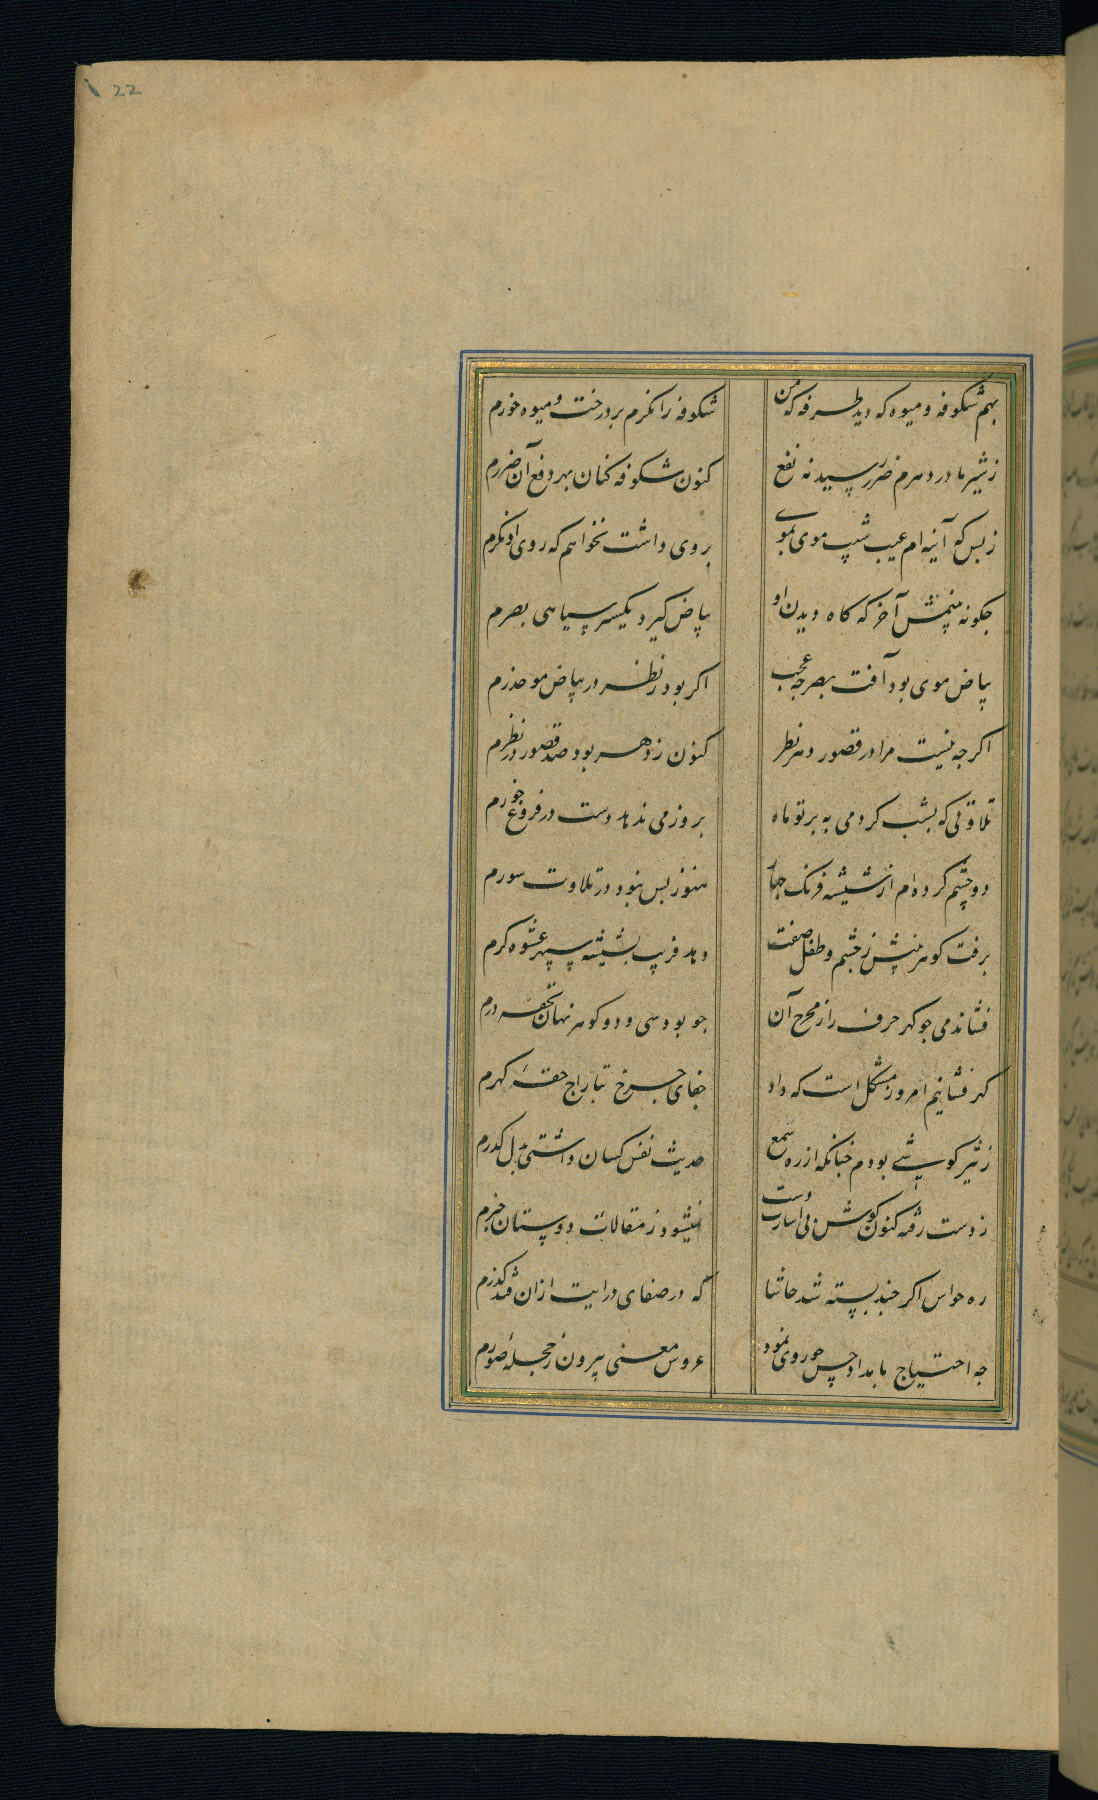 22
بهم شکوفه و میوه که دید طرفه که من شکوفه را نگرم بر درخت و میوه خورم
ز شیر مادر دهرم ضرر رسید نه نفع کنون شکوفه کنان بهر دفع آن ضررم
ز بس که آینه ام عیب شیب موی بموی بروی داشت نخواهم که روی او نگرم
چگونه بینمش آخر که گاه دیدن او بیاض گیرد یکسر سیاهی بصرم
بیاض موی بود آفت بصر چه عجب اگر بود ز نظر در بیاض مو حذرم
اگر چه نیست مرا در قصور دهر نظر کنون ز دهر بود صد قصور در نظرم
تلاوتی که بشب کردمی به پرتو ماه بروز می ندهد دست در فروغ خورم
دو چشم کرده ام از شیشه فرنگ چهار هنوز بس نبود در تلاوت سورم
برفت گوهر بینش ز چشم و طفل صفت دهد فریب بشیشه سپهر عشوه گرم
فشاندمی چو گهر حرف را ز مخرج آن چو بود سی و دو گوهر نهان بحقه درم
گهر فشانیم امروز مشکل است که داد جفای چرخ بتاراج حقه گهرم
ز تیز گوشیی بودم چنانکه از ره سمع حدیث نفس کسان داشتی بدل گذرم
ز دست رفته کنون گوش بی اشارت دست نمیشود ز مقالات دوستان خبرم
ره حواس اگر چند بسته شد حاشا که در صفای درایت ازان فتد کدرم
چه احتیاج بامداد حس چو روی نمود عروس معنی بیرون ز حجله صورم